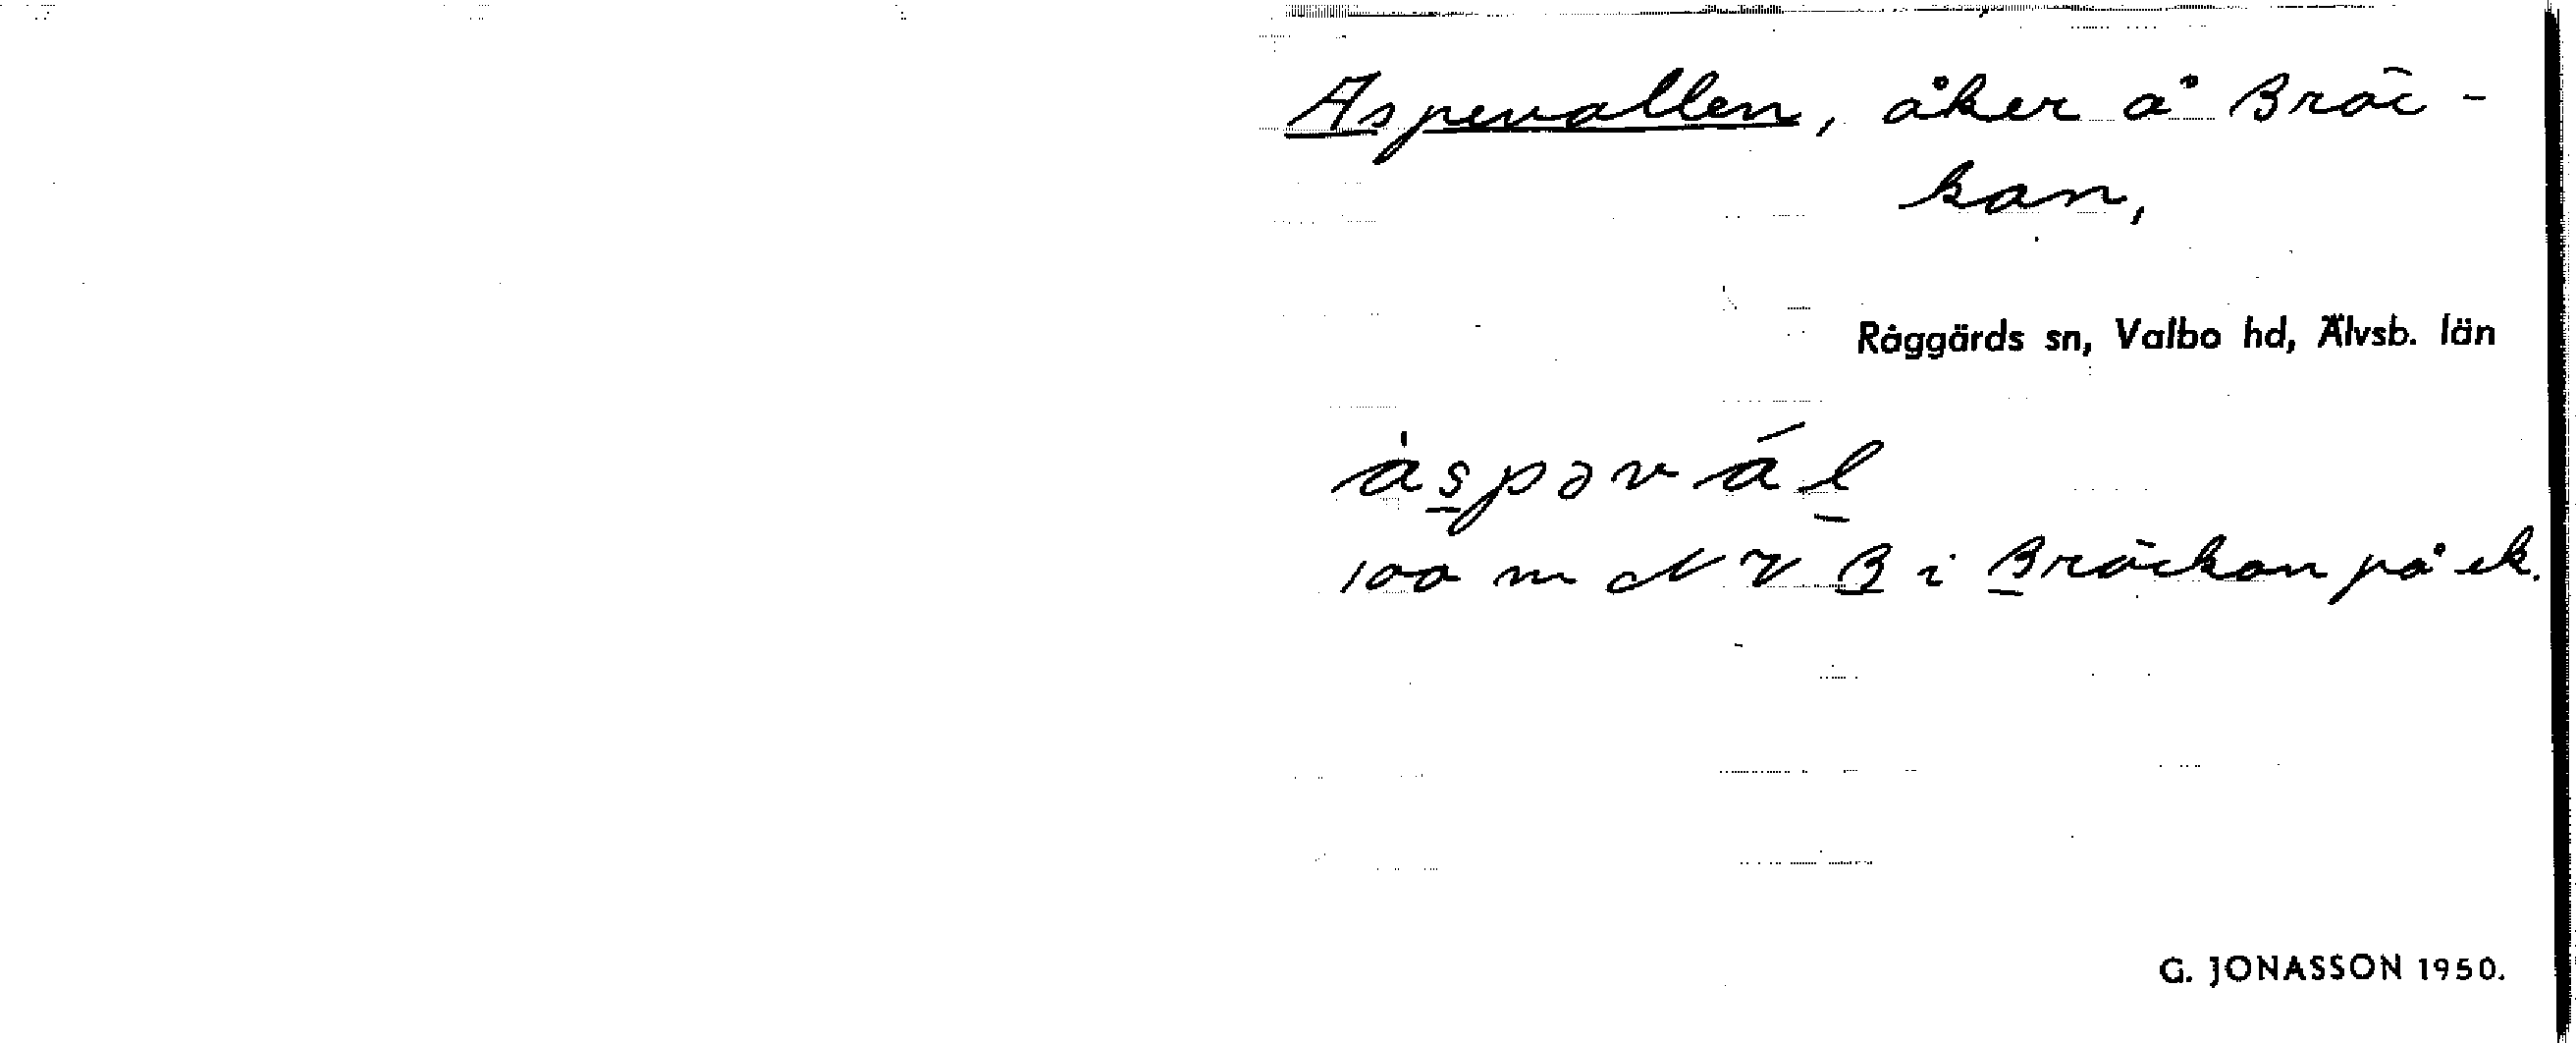 Aspevallen, åker å Bräc-
kan,
Råggärds sn, Valbo hd, Älvsb. län
àspəvál
100 m NV B i Bräckan på ek.
G. JONASSON 1950.